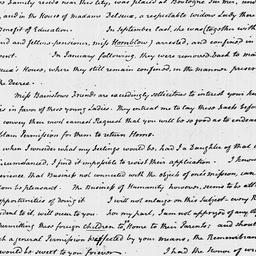 family reside near this city, was placed at Boulogne Sur mer, und
and in the House of madame Delseux, a respectable widow Lady there
Benefit of Education. In September last, she was (together with
and and fellow-pensioner, miss Hornblow) arrested, and confined in
ment. In January following, they were removed back to mad
eux's House, where they still remain confined, in the manner presc
the Decree.
Miss Bainbows Friends are exceedingly sollicitous to interest your hu
ties in favor of these young Ladies. They entreat me to lay these facts before
convey their most earnest Request that you will be so good as to endeav
obtain Permission for them to return Home.
when I consider what my feelings would be, had I a Daughter of that a
circumstanced, I find it impossible to resist their application. I know
perience that Business not connected with the objects of one's mission, can
om be pleasant. The Business of Humanity however, seems to be all
opportunities of doing it. I will not enlarge on this Subject. every R
ident to it, will occur to you. For my part, I am not apprized of any Ob
permitting these foreign children to Home to their Parents; and shou
ch a general Permission be effected by your means, the Remembran
would be sweet to you forever. I had the Honor of w